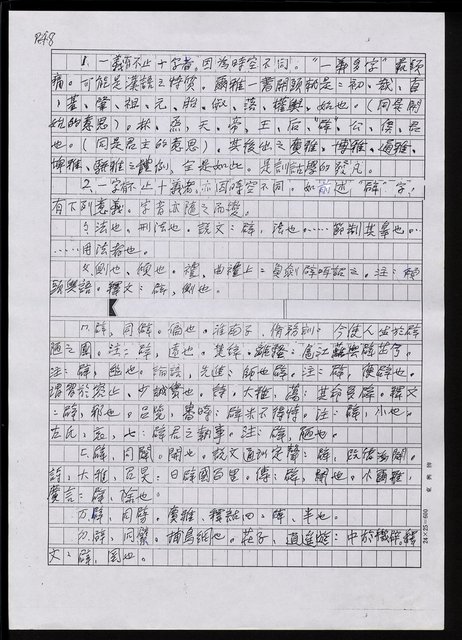 P48
1.一義有不止十字者。因為時空不同。"一義多字"最頭
痛。可能是漢語之特質。爾雅一書開頭就是:初、哉、首
、基、肇、祖、元、胎、俶、落、權輿、始也。(同是開
始的意思)。林、烝、天、帝、王、后、"辟"、公、侯、君
也。(同是君主的意思)。其後出之廣雅、博雅、
雅之體例,全是如此。是訓詁學的發凡。
2.一字有不止十義者,亦因時空不同。如前述"辟"字,
有下列意義。字音亦隨之而變。
法也、刑法也。說文:辟,法也。……節制其辠也。
……用法者也。
側也。傾也。禮、曲禮上:負劍辟咡詔之。注:
頭與語。釋文:辟,側也。
辟,同僻。偏也。淮南子、脩務訓:今使人生於辟
陋之國。注:辟,遠也。
注:辟,幽也。論語,先進:師也辟。注:辟,便辟也。
謂習於容止,少誠實也。詩,大雅,蕩:其命多辟。釋文
:辟,邪也。
左氏,哀,七:辟君之執事。注:辟,陋也。
辟,同闢。開也。說文通訓定聲:辟,段借為闢。
詩,大雅,召旻:日辟國百里。傳:辟,開也。小爾雅,
廣言:辟、除也。
辟,同擘。廣雅,釋詁四:辟、半也。
辟,同繴。捕鳥網也。莊子,逍遙遊:中於機辟。釋
文:辟,罔也。
24×25=600